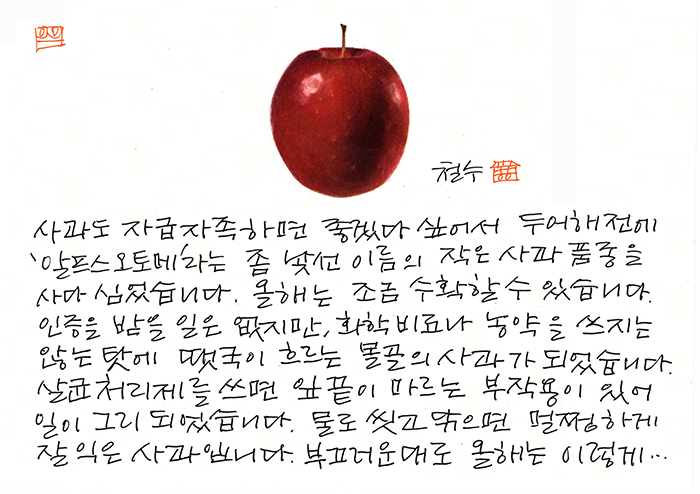 철수
사과도 자급자족하면 좋겠다 싶어서 두어해전에
'알프스오토메'라는 좀 낯선 이름의 작은 사과 품종을
사다 심었습니다. 올해는 조금 수확할 수 있습니다.
인증을 받을 일은 없지만, 화학비료나 농약을 쓰지는
않는 탓에 땟국이 흐르는 몰골의 사과가 되었습니다.
살균처리제를 쓰면 잎끝이 마르는 부작용이 있어
일이 그리 되었습니다. 물로 씻고 닦으면 멀쩡하게
잘 익은 사과입니다. 부끄러운대로 올해는 이렇게…